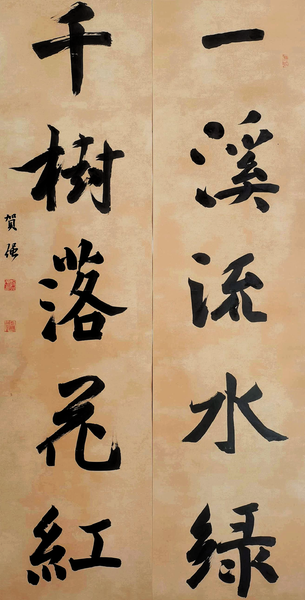 一溪流水绿
千樹落花紅
賀强